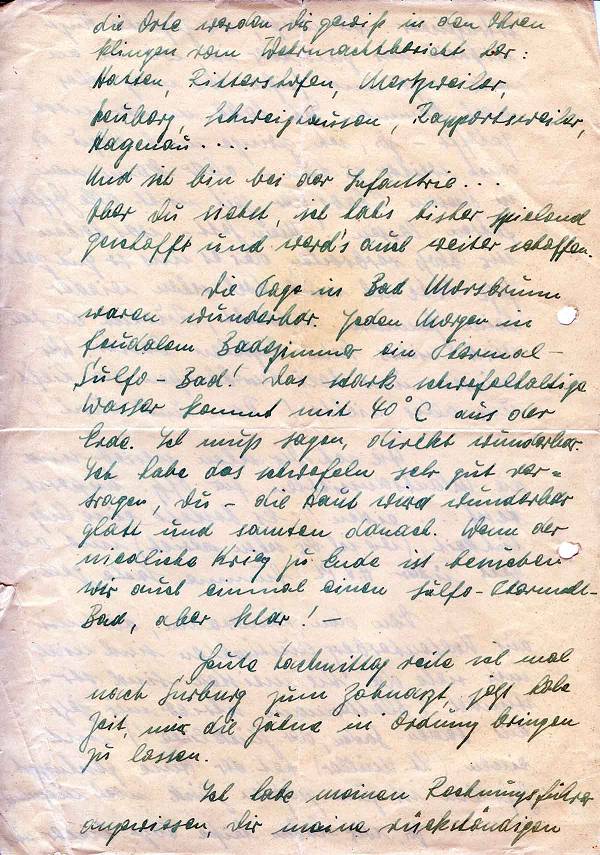 die Orte werden Dir gewiß in den Ohren
klingen vom Wehrmachtbericht her:
Hatten, Rittershofen, Mertzweiler,
Neuburg, Schweighausen, Rappertsweiler,
Hagenau....
Und ich bin bei der Infantrie...
Aber Du siehst, ich hab's bisher spielend
geschafft und werd's auch weiter schaffen.
Die Tage in Bad Morsbrunn
waren wunderbar. Jeden Morgen in
feudalem Badezimmer ein Thermal-
Sulfo-Bad! Das stark schwefelhaltige
Wasser kommt mit 40°C aus der
Erde. Ich muß sagen, direkt wunderbar.
Ich habe das schwefeln sehr gut ver=
tragen, Du - die Haut wird wunderbar
glatt und samten danach. Wenn der
niedliche Krieg zu Ende ist besuchen
wir auch einmal einen Sulfo-Thermal-
Bad, aber klar! -
Heute Nachmittag reite ich mal
nach Surburg zum Zahnarzt, jetzt habe
Zeit, mir die Zähne in Ordnung bringen
zu lassen.
Ich habe meinen Rechnungsführer
angewiesen, Dir meine rückständigen